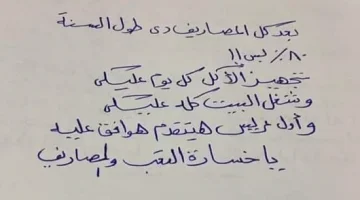 بعد كل المصاريف دى طول السنة
٨٠٪ بس!!
تجهيز الأكل كل يوم عليكى
وشغل البيت كله عليكى
وأول عريس هيتقدم هوافق عليه
يا خسارة التعب والمصاريف